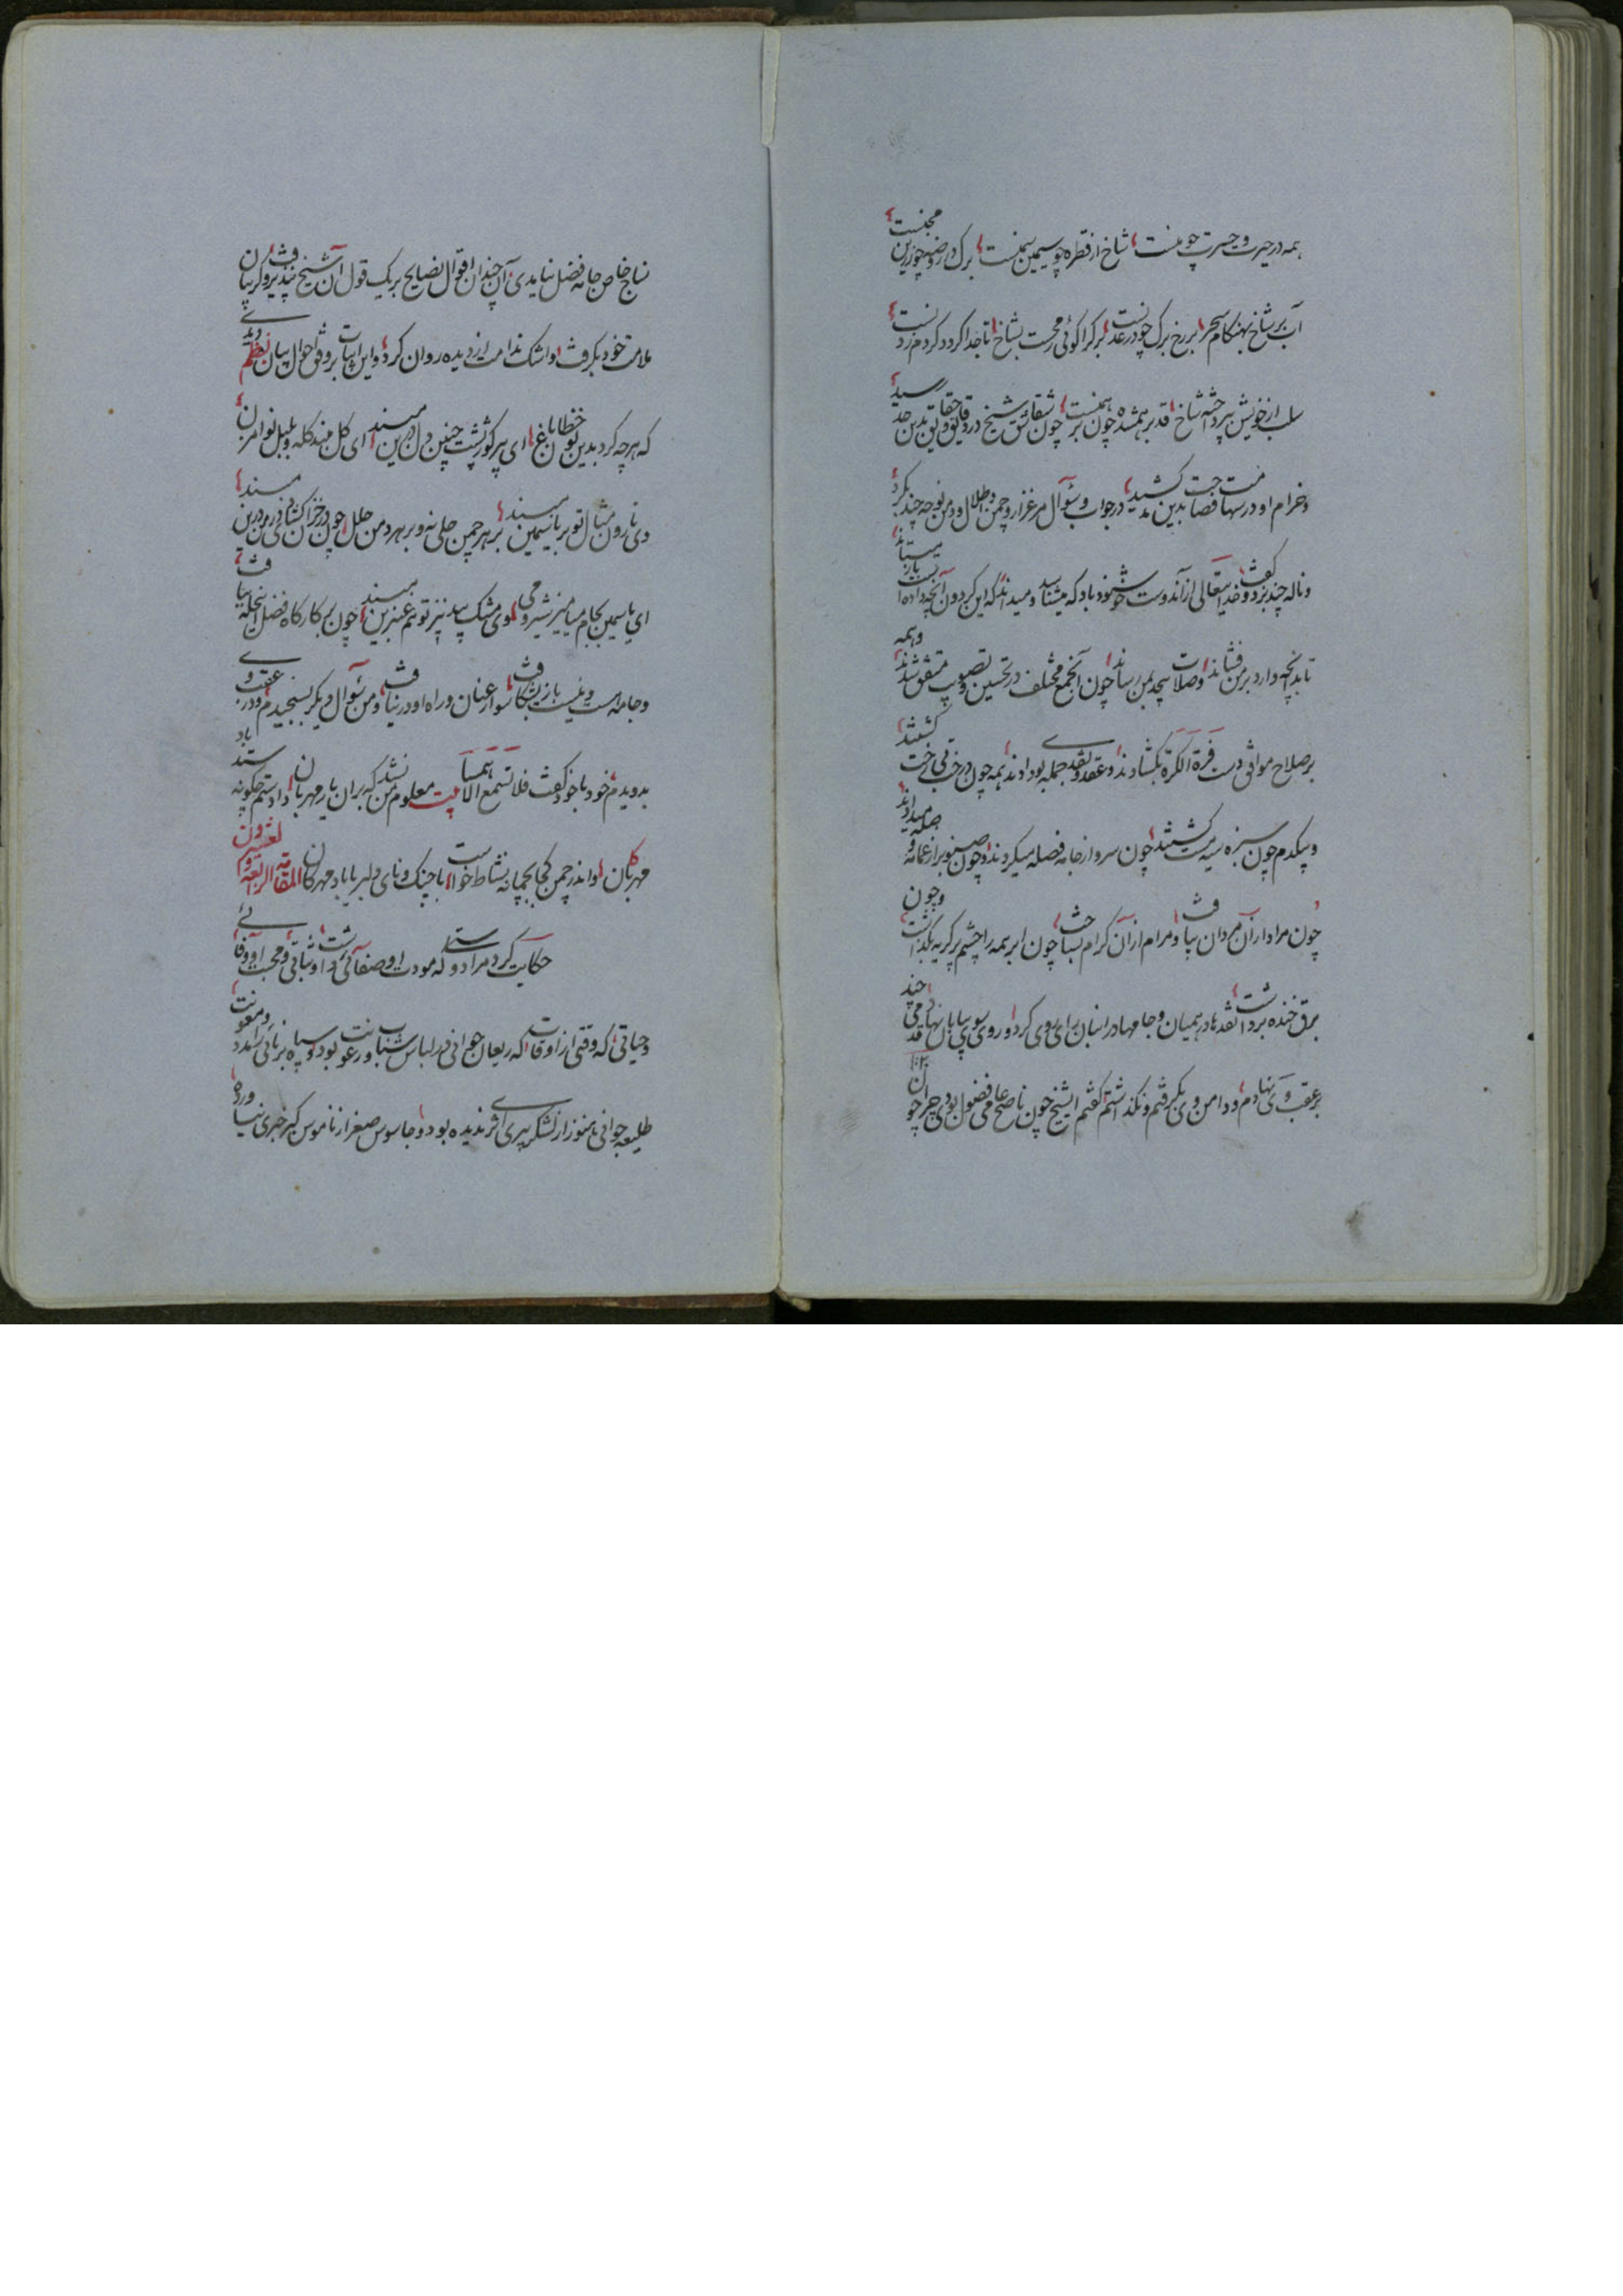 همه در حیرت و حسرت چو منست شاخ از قطره چو سیمین سمنست برک در روضه چو زرین مجنست
آب بر شاخ بهنکام سحر بر رخ برک چو در عدنست برک را کوئی رحمت بشاخ تا جدا کردد کردم زدنست
سلب از خویش بپرداخته شاخ قد برهمشده چون برهمنست چون شقائق شیخ در دقایق و حقایق بدین حد رسید
و خرام او در سها فصاحت بدین حد کشید در جواب و سؤال مرغزار و چمن و طلال و دمن نوحه چند بکرد
و ناله چند بزد و کفت خدایتعالی از آندوست خوشنود باد که میشناسد و میداند که این کردون آنچه داده است باز میستاند
تا بدانچه دارد بر من فشاند وصلات بیحد بمن رساند چون آنجمع مختلف در تحسین و تصویب متفق شدند و همه
بر صلاح مواثی دست فرة الکرة بکشادند و عقدی و نقدی جمله بدو دادند همه چون درختی بی رخت کشتند
و بیکدم چون سبزه سیه مست کشتند چون سرو از جامه فصله میکردند و چون صنوبر از عمامه وصله میدادند
چون مراد از آن مردان بیافت و مرام از آن کرام بساخت چون ابر همه را چشم پر کریه بکذاشت و چون
برق خنده برداشت نقدها در همیان و جامها در انبان برای روی کرد و روی سوی بیابان نهاد قدمی چند
بر عقب وی نهادم و دامن وی بکرفتم و نکذاشتم کفتم ایشیخ چون ناصح عامی فضول بودی چرا چون
نساج خاص جامه فضل نبایدی آن چندان اقوال نصایح بر یک قول آن شیخ بپذیرفت و کریبان
ملامت خود بکرفت و اشک ندامت از دیده روان کرد و این ابیات بر وفق احوال بیان نظم
که هر چه کرد بدین نوخط باغ ای پر کوژپشت چنین دل درین مبند ای کل مبند کله و بلبل نوا مزن
دی نارون مثال تو بر یاسمین مبند بر هر چمن حلی نه و بر هر دمن حلل چون در خزان کشائی در فرودین مبند
ای یاسمین بجام میامیز شیر و می وی مشک بید نیز تو هم عنبرین مبند چون بر کارکاه فضل این حله بیافت
و جامه هست و نیست باز شکافت سوار عنان در راه او درنیافت و من سؤال دیکر بسنجیدم و در عقب وی
بدویدم خود با خود کفت فلا تسمع الا همسا بیت معلوم من نشد که بر آن یار مهربان داد ستم چکونه ستد باد
مهرکان واندر چمن کجا بچمانه نشاط خواست با چنک و نای دلبر یا باد مهرکان المقامة الرابعة و العشرون
حکایت کرد مرا دوستی که مودت او صفائی داشت و ثباتی و محبت او وفائی
و حیاتی که وقتی از اوقات که ریعان جوانی در لباس شباب و رعونت بود و سپاه برنائی را مدد و معونت
طلیعه جوانی هنوز از لشکر پیری اثر ندیده بود و جاسوس صغر از ناموس کبر خبری نیاورده